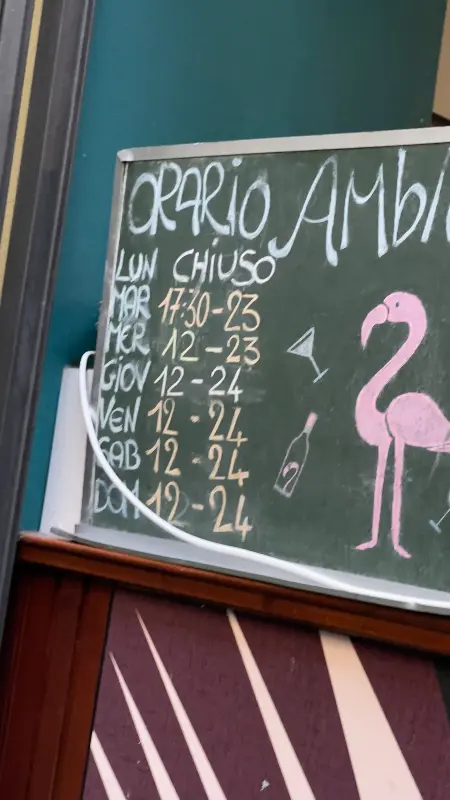 ORARIO
LUN CHIUSO
MAR 17:30-23
MER 12-23
GIOV 12-24
VEN 12-24
SAB 12-24
DOM 12-24